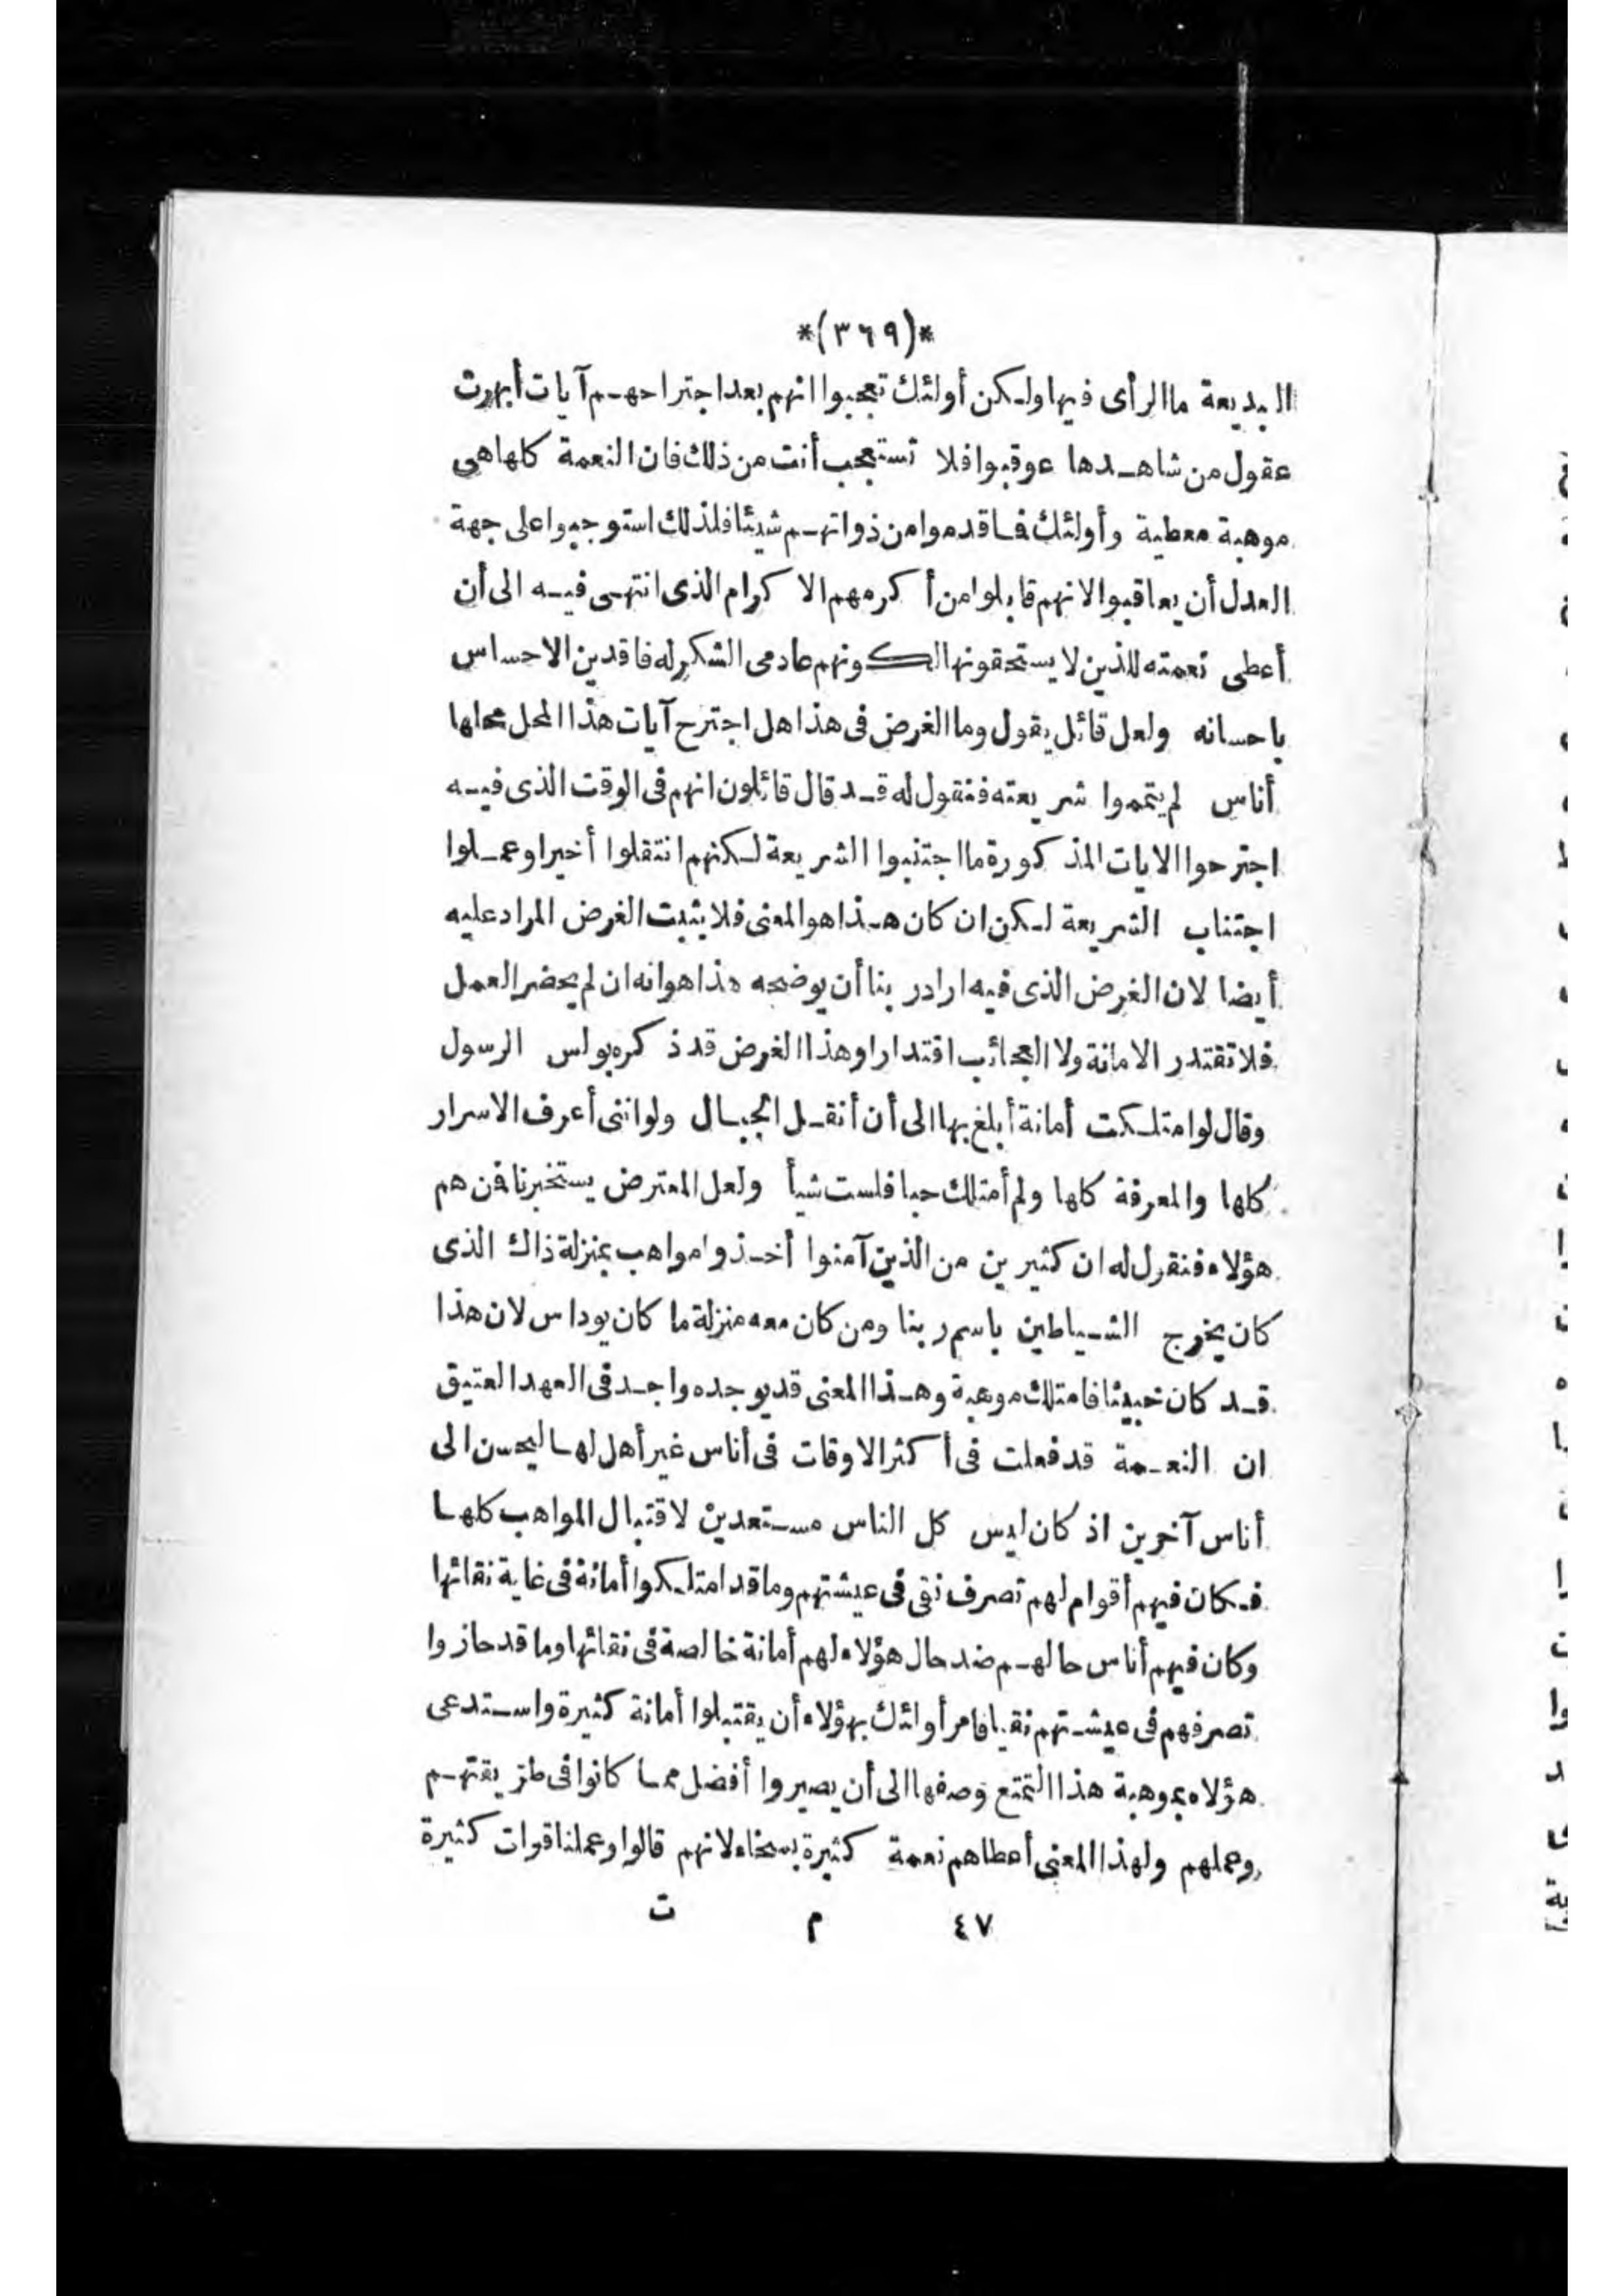 *(٣٦٩)*
البديعة ما الرأى فيها ولكن أولئك تعجبوا انهم بعد اجتراحهم آيات أبهرت
عقول من شاهدها عوقبوا فلا تستعجب أنت من ذلك فان النعمة كلها هى
موهبة معطية وأولئك فما قدموا من ذواتهم شيئا فلذلك استوجبوا على جهة
العدل أن يعاقبوا لانهم قابلوا من أكرمهم الاكرام الذى انتهى فيه الى أن
أعطى نعمته للذين لا يستحقونها لكونهم عادمى الشكر له فاقدين الاحساس
باحسانه ولعل قائل يقول وما الغرض فى هذا هل اجترح آيات هذا المحل محلها
أناس لم يتمموا شريعته فنقول له قد قال قائلون انهم فى الوقت الذى فيه
اجترحوا الايات المذكورة ما اجتنبوا الشريعة لكنهم انتقلوا أخيرا وعملوا
اجتناب الشريعة لكن ان كان هذا هو المعنى فلا يثبت الغرض المراد عليه
أيضا لان الغرض الذى فيه اراد ربنا أن يوضحه هذا هو انه ان لم يحضر العمل
فلا تقتدر الامانة ولا العجائب اقتدارا وهذا الغرض قد ذكره بولس الرسول
وقال لو امتلكت أمانة أبلغ بها الى أن أنقل الجبال ولو اننى أعرف الاسرار
كلها والمعرفة كلها ولم أمتلك حبا فلست شيأ ولعل المعترض يستخبرنا فمن هم
هؤلاء فنقول له ان كثيرين من الذين آمنوا أخذوا مواهب بمنزلة ذاك الذى
كان يخرج الشياطين باسم ربنا ومن كان معه منزلة ما كان يوداس لان هذا
قد كان خبيثا فامتلك موهبة وهذا المعنى قد يوجده واجد فى العهد العتيق
ان النعمة قد فعلت فى أكثر الاوقات فى أناس غير أهل لها ليحسن الى
أناس آخرين اذ كان ليس كل الناس مستعدين لاقتبال المواهب كلها
فكان فيهم أقوام لهم تصرف نقى فى عيشتهم وما قد امتلكوا أمانة فى غاية نقائها
وكان فيهم أناس حالهم ضد حال هؤلاء لهم أمانة خالصة فى نقائها وما قد حازوا
تصرفهم فى عيشتهم نقيا فامر أوائك بهؤلاء أن يقتبلوا أمانة كثيرة واستدعى
هؤلاء بموهبة هذا التمتع وصفها الى أن يصيروا أفضل مما كانوا فى طريقتهم
وعملهم ولهذا المعنى أعطاهم نعمة كثيرة بسخاء لانهم قالوا وعملنا قوات كثيرة
٤٧ م ت